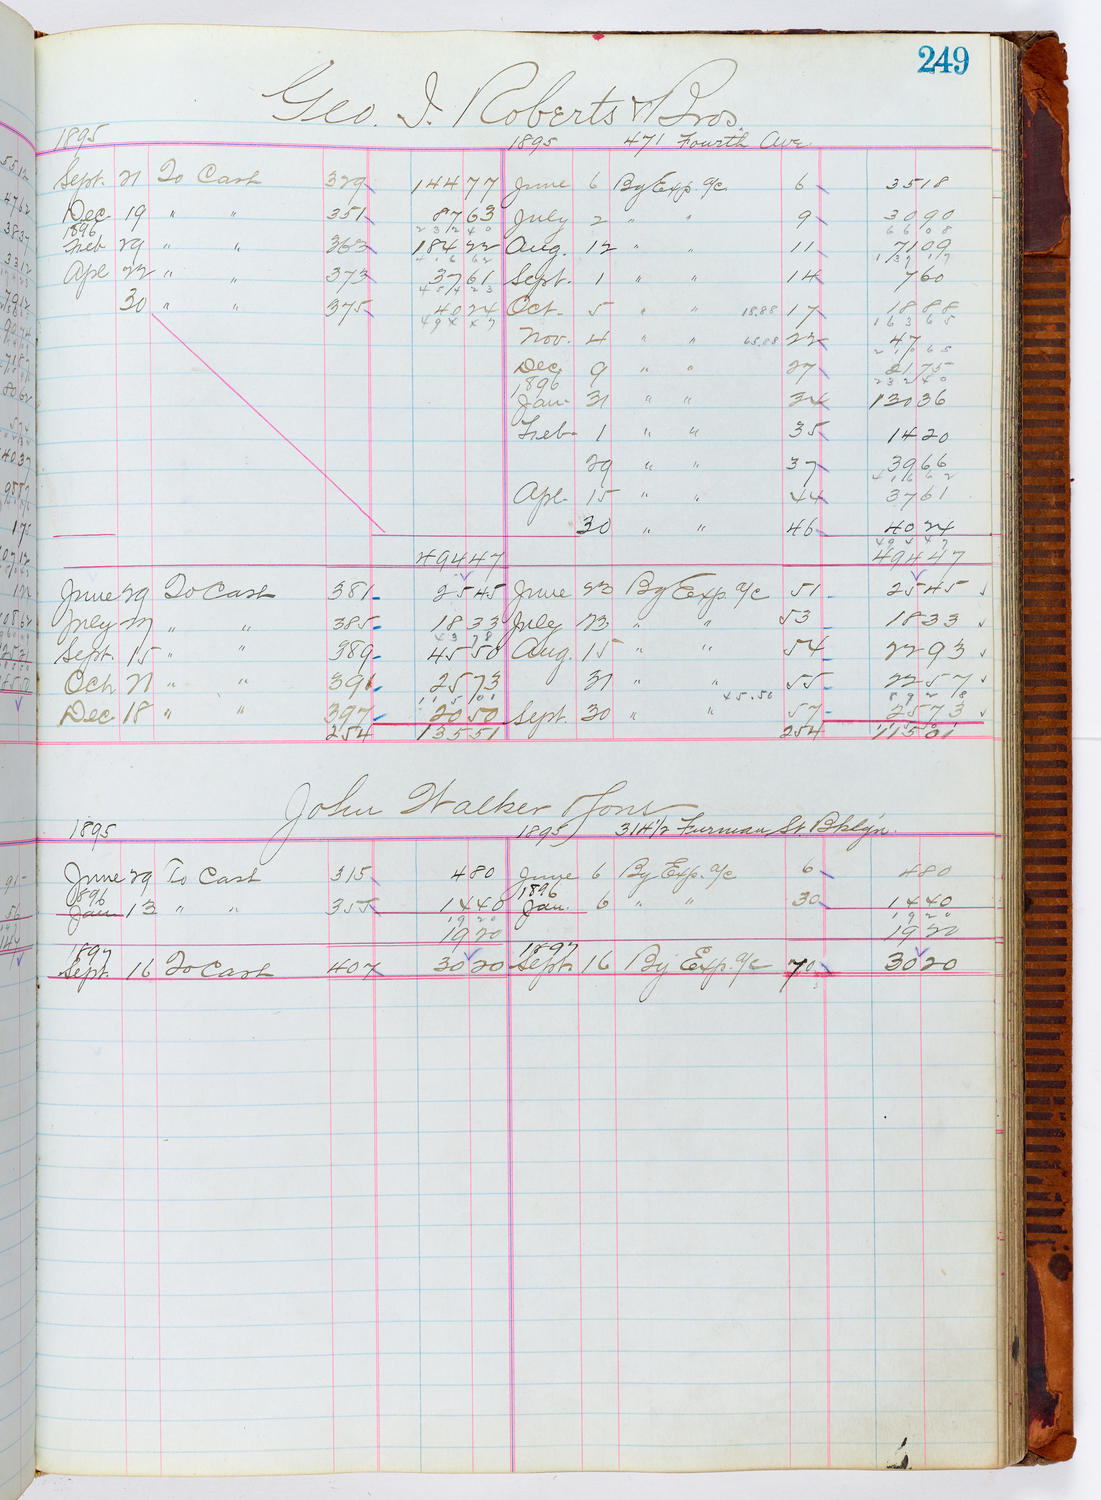 249
Geo. I. Roberts & Bros.
1895 1895 471 Fourth Ave.
Sept. 21 To Cash 329 144 77 June 6 By Exp. a/c 6 35 18
Dec 19 " " 351 87 63 July 2 " " 9 30 90
1896 232 40 66 08
Feb 29 " " 363 184 22 Aug. 12 " " 11 71 09
416 62 137 17
Apl 22 " " 373 37 61 Sept. 1 " " 14 7 60
454 23
30 " " 375 40 24 Oct. 5 " " 18.88 17 18 88
163 65
Nov. 4 " " 65.88 22 47
210 65
Dec 9 " " 27 21 75
1896 232 40
Jan. 31 " " 34 130 36
Feb 1 " " 35 14 20
29 " " 37 39 66
416 62
Apl. 15 " " 44 37 61
30 " " 46 40 24
494 47 494 47
June 29 To Cash 381 25 45 June 23 By Exp a/c 51 25 45
July 27 " " 385 18 33 July 23 " " 53 18 33
43 78
Sept. 15 " " 389 45 50 Aug. 15 " " 54 22 93
Oct 21 " " 391 25 73 31 " " 55 22 57
115 01 45.50 89 28
Dec 18 " " 397 20 50 Sept. 30 " " 57 25 73
254 135 51 254 115 01
John Walker Sons
1895 1895 314 1/2 Furman St. Bklyn.
June 29 To Cash 315 4 80 June 6 By Exp. a/c 6 4 80
1896 1896
Jan 13 " " 355 14 40 Jan. 6 " " 30 14 40
19 20 19 20
19 20 19 20
1897 1897
Sept. 16 To Cash 407 30 20 Sept. 16 By Exp. a/c 70 30 20